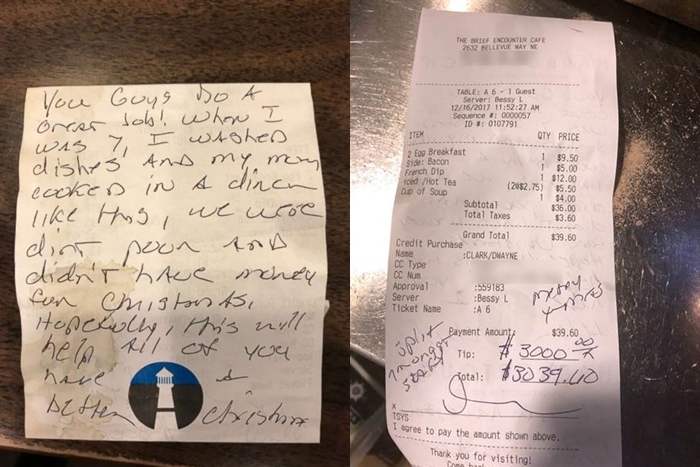 You Guys Do A
Great Job! When I
was 7, I washed
dishes And my mom
cooked in A diner
like this, we were
dirt poor And
didn't have money
for Christmas.
Hopefully, this will
help All of you
have A
better Christmas
THE BRIEF ENCOUNTER CAFE
2632 BELLEVUE WAY NE
TABLE: A 6 - 1 Guest
Server: Bessy L
12/16/2017 11:52:27 AM
Sequence #: 0000057
ID #: 0107791
ITEM QTY PRICE
2 Egg Breakfast 1 $9.50
Side: Bacon 1 $5.00
French Dip 1 $12.00
Iced /Hot Tea (2@$2.75) $5.50
Cup of Soup 1 $4.00
Subtotal $36.00
Total Taxes $3.60
Grand Total $39.60
Credit Purchase
Name :CLARK/DWAYNE
CC Type
CC Num
Approval :559183
Server :Bessy L
Ticket Name :A 6
Merry
Xmas
Payment Amount: $39.60
split
Amongst
staff
Tip: $3000.00
Total: $3039.60
X
TSYS
I agree to pay the amount shown above.
Thank you for visiting!